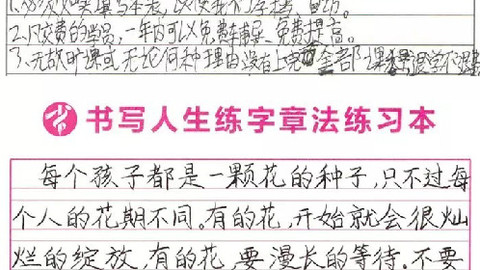 2.凡交费的学员,一年内可以免费辅导、免费提高。
3.无故旷课或无论何种理由没有上完全部课
书写人生练字章法练习本
每个孩子都是一颗花的种子,只不过每
个人的花期不同。有的花,开始就会很灿
烂的绽放,有的花,要漫长的等待。不要